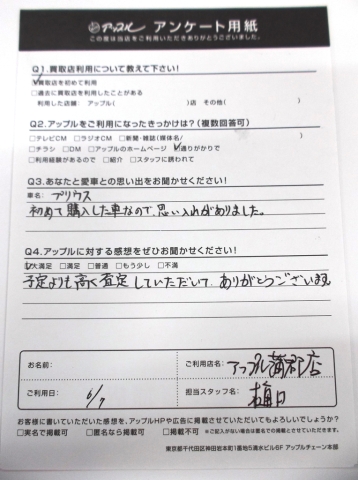 アップル アンケート用紙
この度は当店をご利用いただきありがとうございました。
Q1.買取店利用について教えて下さい!
☑買取店を初めて利用
□過去に買取店を利用したことがある
利用した店舗: アップル( )店 その他( )
Q2.アップルをご利用になったきっかけは?(複数回答可)
□テレビCM □ラジオCM □新聞・雑誌(媒体名/ )
□チラシ □DM □アップルのホームページ ☑通りがかりで
□利用経験があるので □紹介 □スタッフに誘われて
Q3.あなたと愛車との思い出をお聞かせください!
車名: プリウス
初めて購入した車なので、思い入れがありました。
Q4.アップルに対する感想をぜひお聞かせください!
☑大満足 □満足 □普通 □もう少し □不満
予定よりも高く査定していただいて、ありがとうございます。
お名前:
ご利用店名: アップル蒲郡店
ご利用日: 6/7
担当スタッフ名: 植田
お客様に書いていただいた感想を、アップルHPや広告に掲載させていただいてもよろしいでしょうか?
□実名で掲載可 □匿名なら掲載可 □掲載不可 ※ご記入がない場合は匿名での掲載とさせていただきます。
東京都千代田区神田岩本町1番地5清水ビル6F アップルチェーン本部